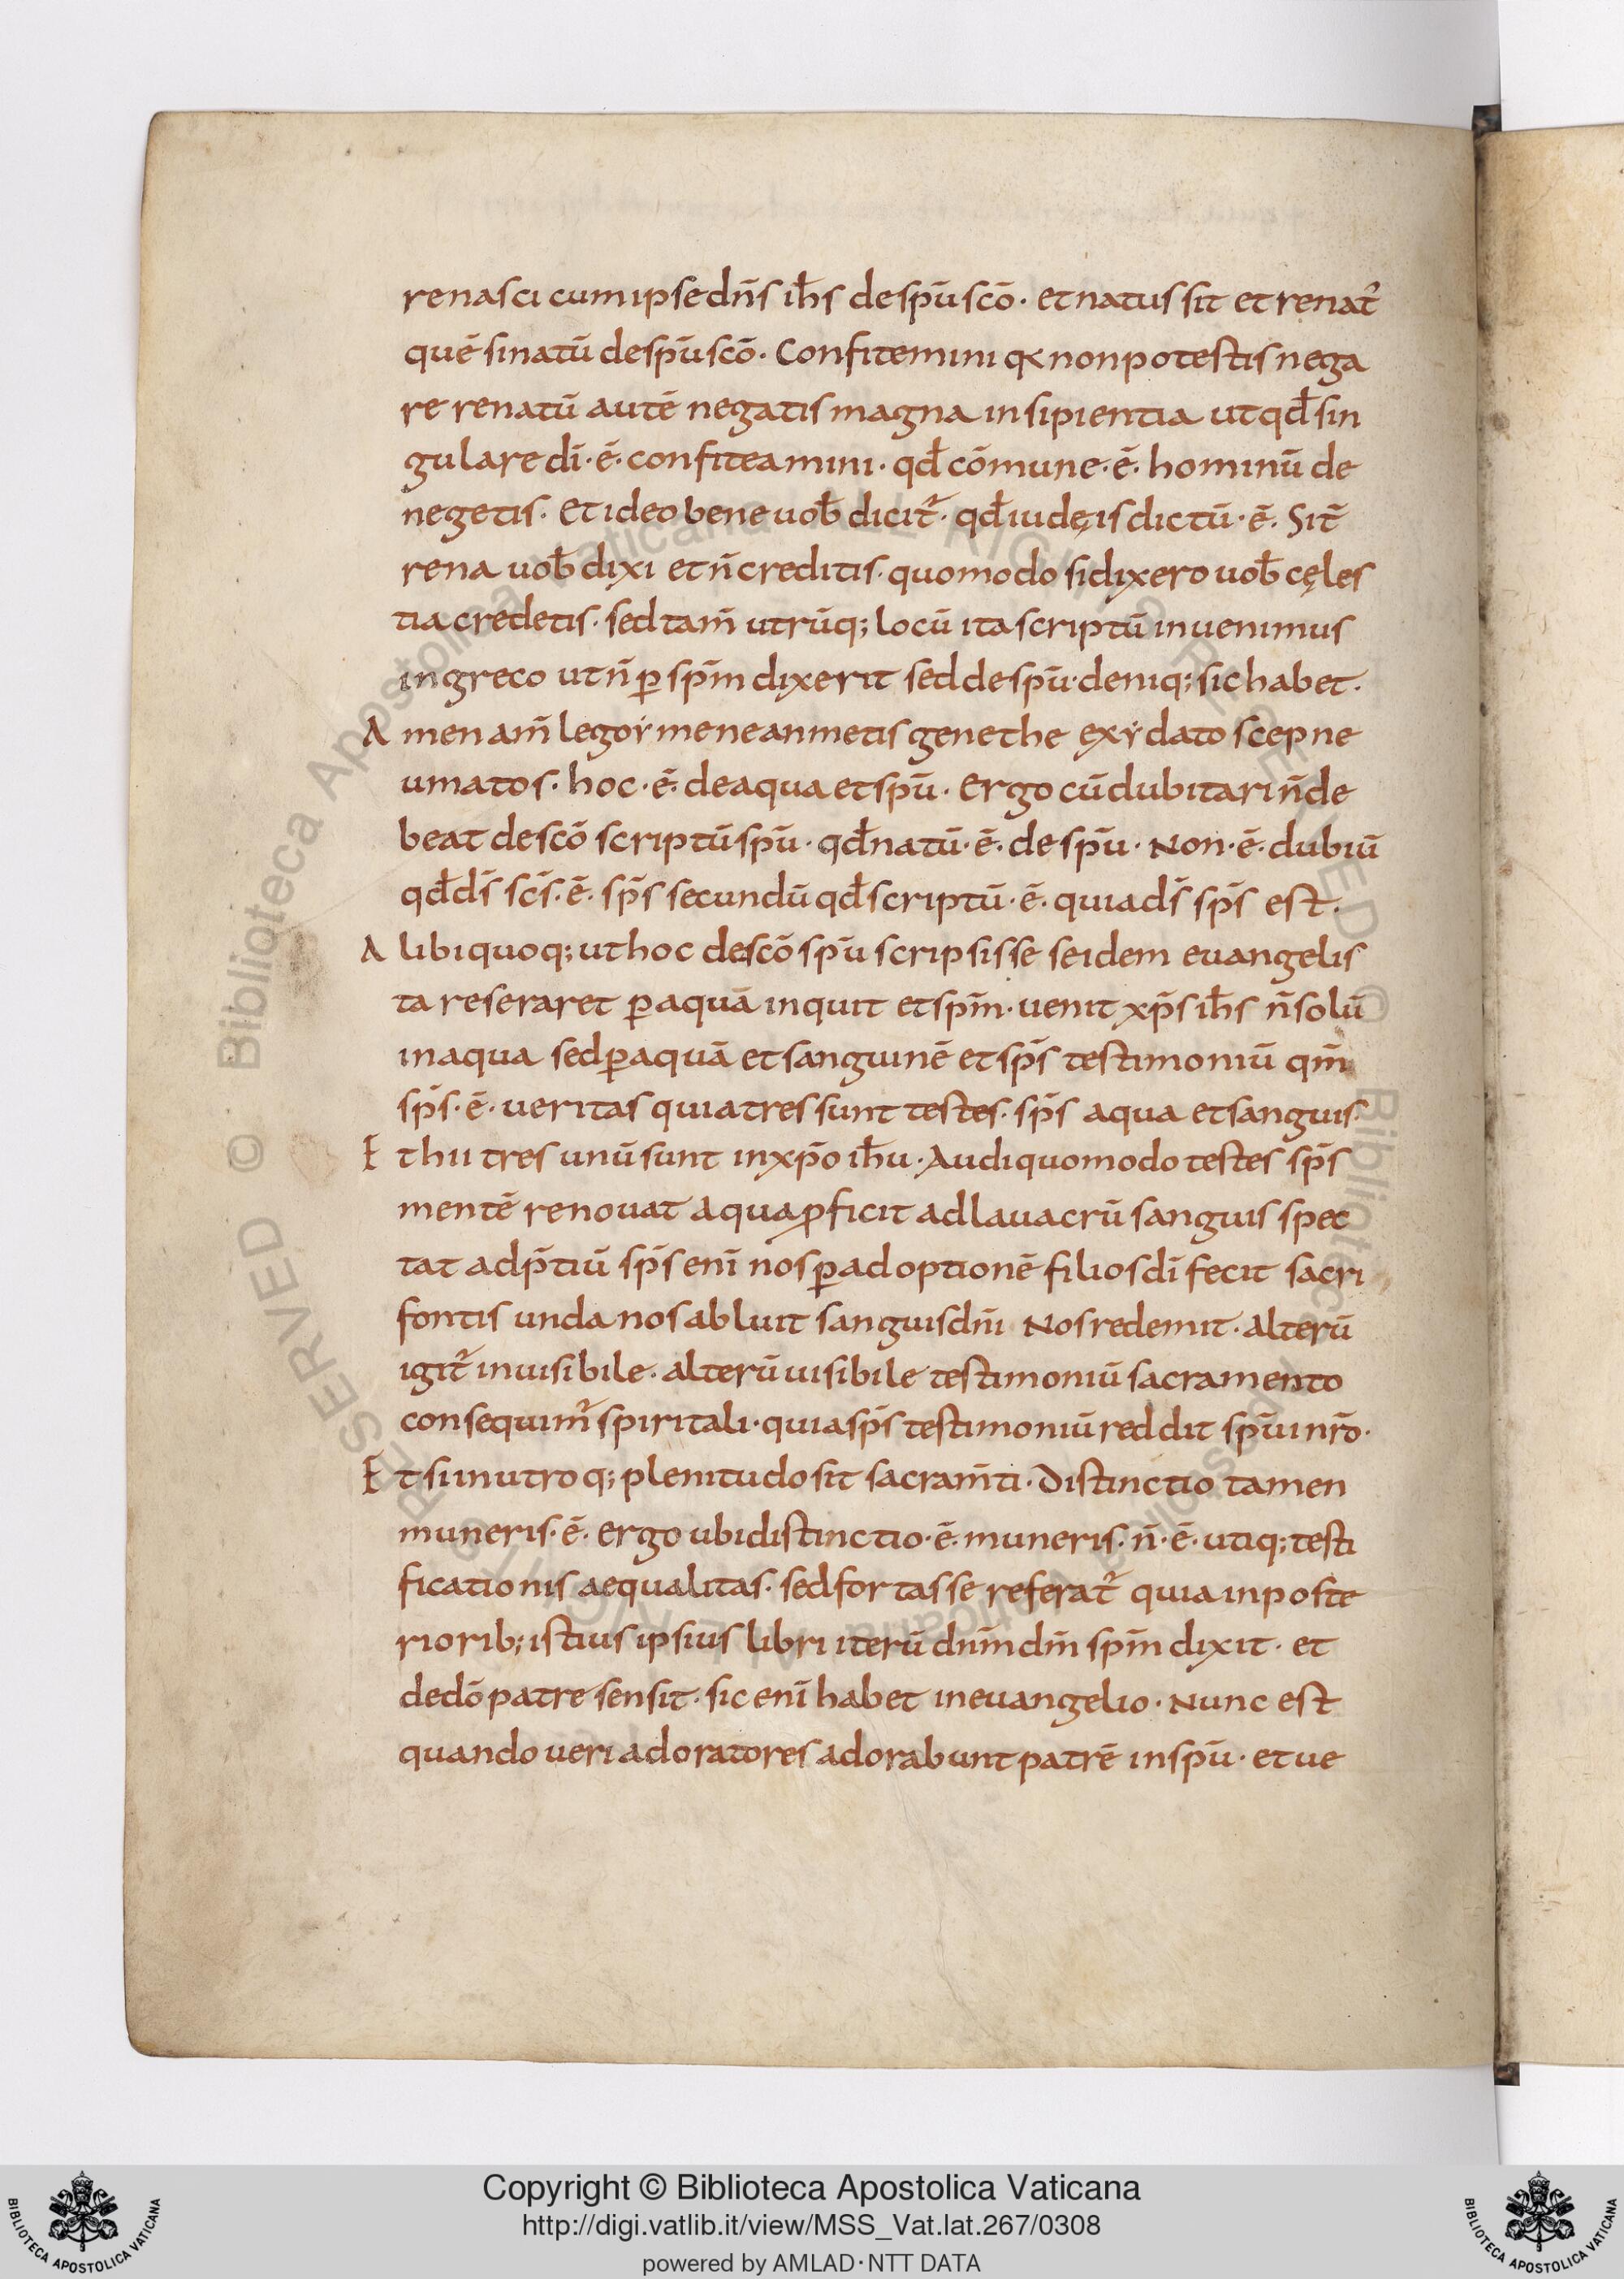 renasci cum ipse dn̄s ih̄s de spū scō · et natus sit et renat᷒
quē si natū de spū scō · Confitemini qx non potestis nega
re renatū autē negatis magna insipientia ut qđ sin
gulare dī · ē · confiteamini · qđ cōmune · ē · hominū de
negetis · Et ideo bene uob̄ dicit᷒ · qđ iudęis dictū · ē · Si t̄
rena uob̄ dixi et n̄ creditis · quomodo si dixero uob̄ cęles
tia credetis · sed tam̄ utrūq; locū ita scriptū inuenimus
in greco ut n̄ ꝑ sp̄m dixerit sed de spū · deniq; sic habet ·
A men am̄ legoẏ meneanmetis genethe exẏdato scepne
umatos · hoc · ē · de aqua et spū · Ergo cū dubitari n̄ de
beat de scō scriptū spū · qđ natū · ē · de spū · Non · ē · dubiū
qđ ds̄ scs̄ · ē · sps̄ secundū qđ scriptū · ē · quia ds̄ sps̄ est ·
A libi quoq; ut hoc de scō spū scripsisse se idem euangelis
ta reseraret ꝑ aquā inquit et sp̄m · uenit xp̄s ih̄s n̄ solū
in aqua sed ꝑ aquā et sanguinē et sps̄ testimoniū qm̄
sps̄ · ē · ueritas quia tres sunt testes · sps̄ aqua et sanguis ·
E t hii tres unū sunt in xp̄o ih̄u · Audi quomodo testes sps̄
mentē renouat aqua ꝓficit ad lauacrū sanguis spec
tat ad p̄tiū sps̄ enī nos ꝑ adoptionē filios dī fecit sacri
fontis unda nos abluit sanguis dn̄i Nos redemit · alterū
igit᷒ inuisibile · alterū uisibile testimoniū sacramento
consequim᷒ spiritali · quia sps̄ testimoniū reddit spūi nr̄o ·
E t si in utroq; plenitudo sit sacram̄ti · Distinctio tamen
muneris · ē · ergo ubi distinctio · ē · muneris · n̄ · ē · utiq; testi
ficationis aequalitas · sed fortasse referat᷒ quia in poste
riorib; istius ipsius libri iterū dn̄m dm̄ sp̄m dixit · et
de dō patre sensit · sic enī habet in euangelio · Nunc est
quando ueri adoratores adorabunt patrē in spū · et ue
Copyright © Biblioteca Apostolica Vaticana
http://digi.vatlib.it/view/MSS_Vat.lat.267/0308
powered by AMLAD · NTT DATA
BIBLIOTECA APOSTOLICA VATICANA
BIBLIOTECA APOSTOLICA VATICANA